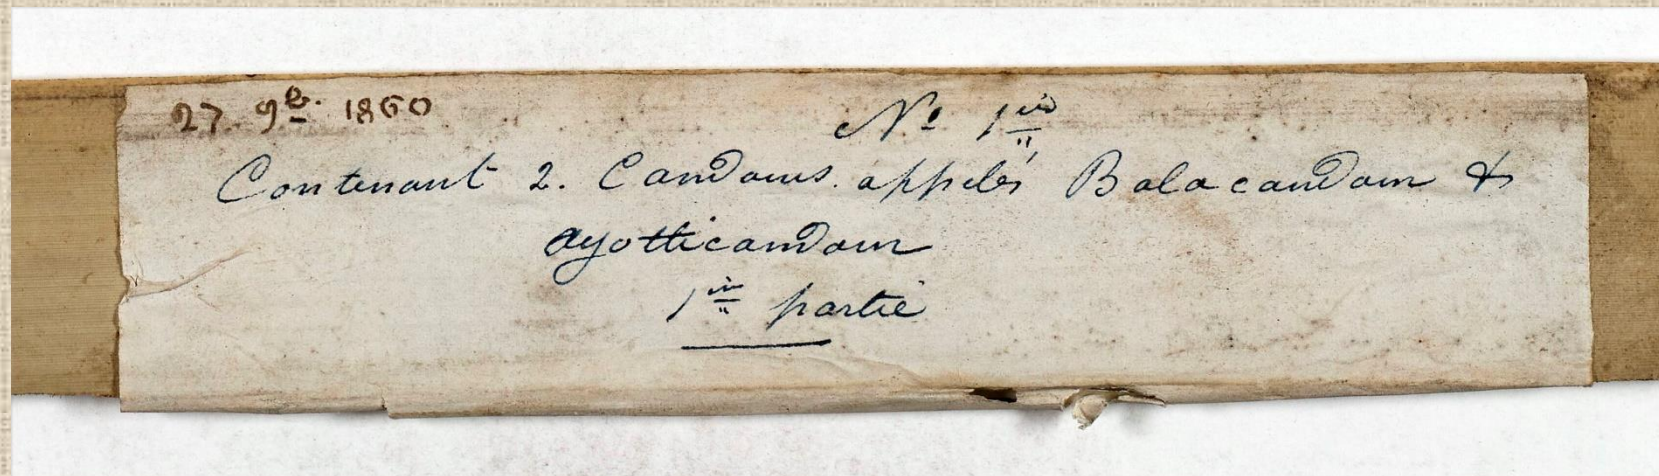 27. 9b. 1860
No 1er
Contenant 2. Candoms. appelés Balacandom &
ayotticandom
1er partie